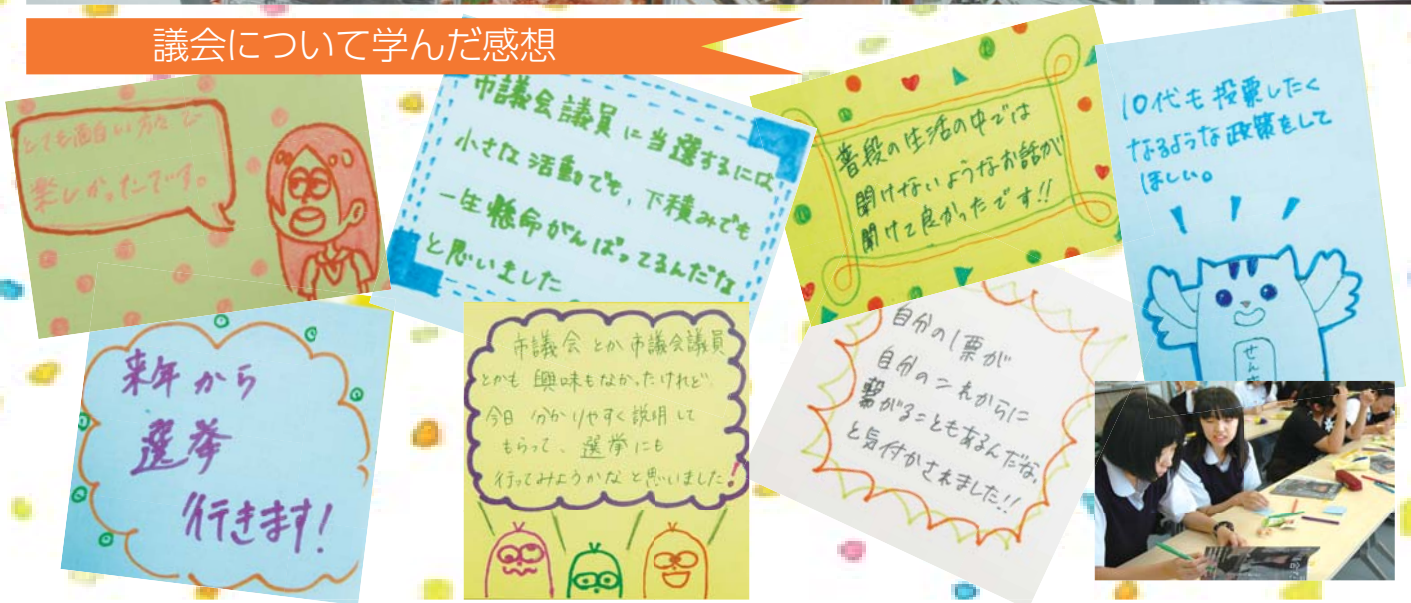 議会について学んだ感想
とても面白い方々で
楽しかったです。
市議会議員に当選するには
小さな活動でも、下積みでも
一生懸命がんばってるんだな
と思いました
普段の生活の中では
聞けないようなお話が
聞けて良かったです!!
10代も投票したく
なるような政策をして
ほしい。
せん
来年から
選挙
行きます!
市議会とか市議会議員
とかも興味もなかったけれど
今日分かりやすく説明して
もらって、選挙にも
行ってみようかなと思いました!
自分の1票が
自分のこれからに
繋がることもあるんだな、
と気付かされました!!